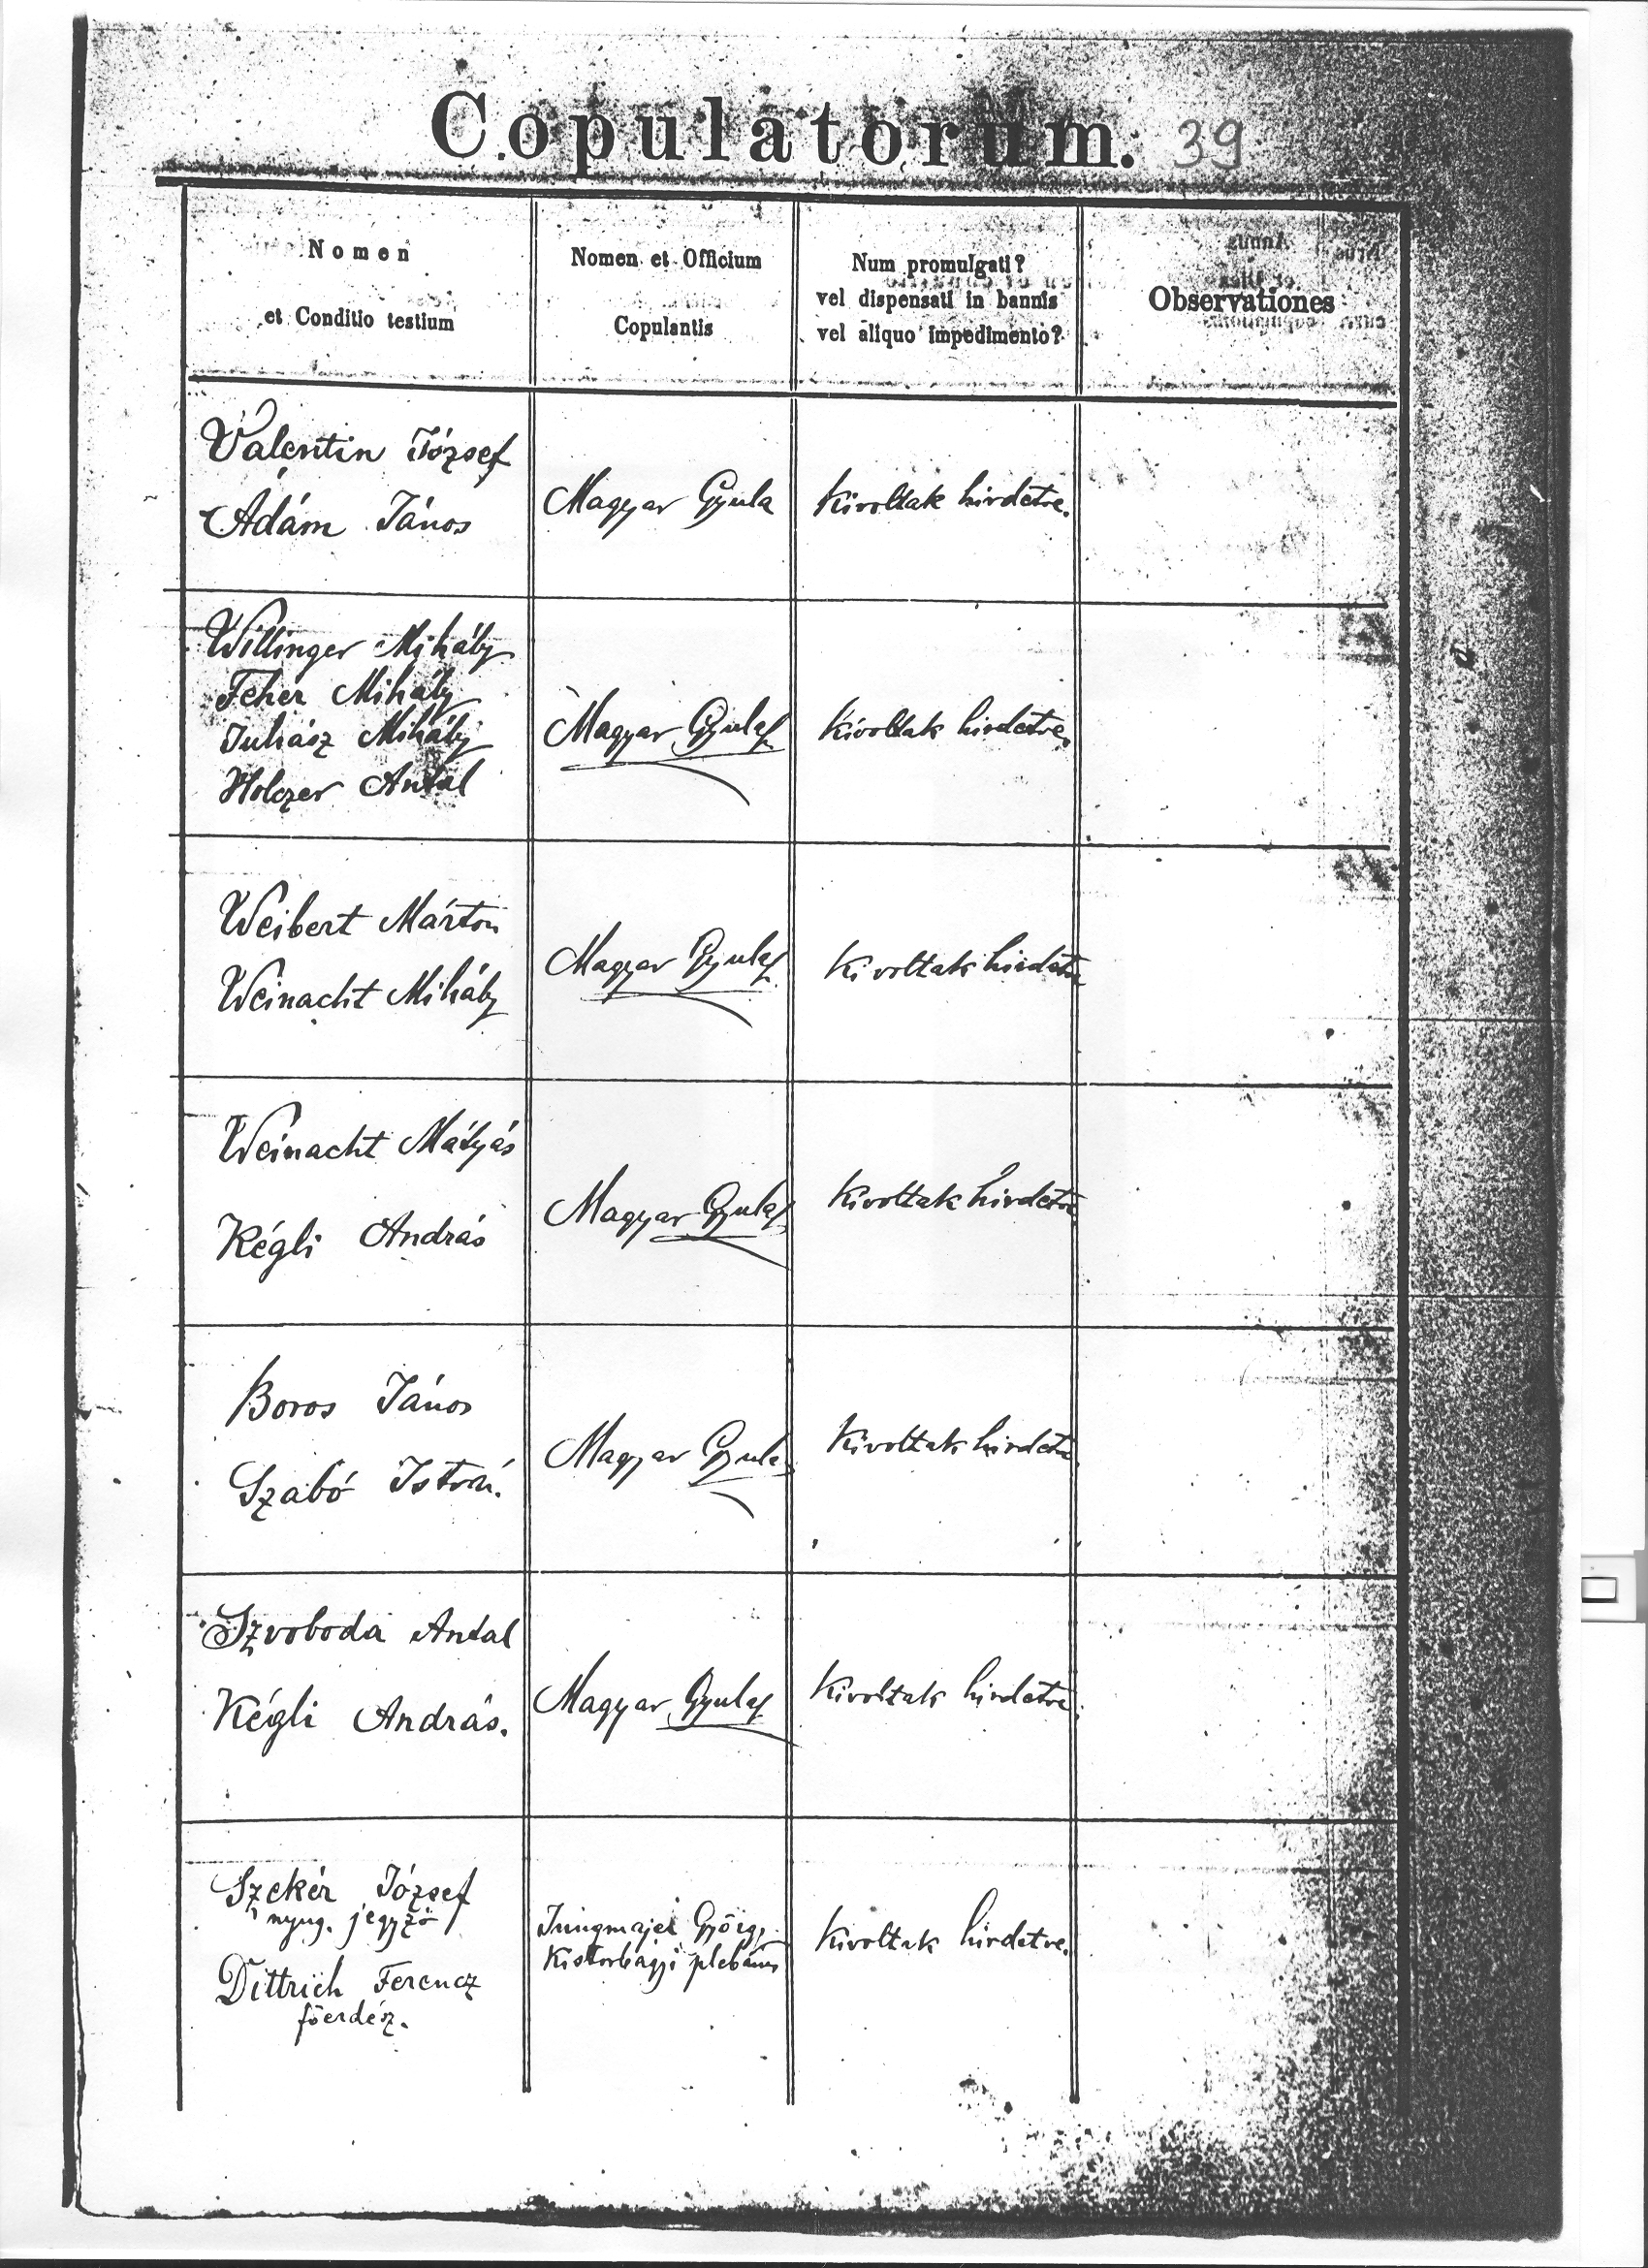 Copulatorum. 39
Nomen
et Conditio testium
Nomen et Officium
Copulantis
Num promulgati?
vel dispensati in bannis
vel aliquo impedimento?
Observationes
Valentin József
Ádám János
Magyar Gyula
Kivoltak hirdetve.
Willinger Mihály
Fehér Mihály
Juhász Mihály
Holczer Antal
Magyar Gyula
Kivoltak hirdetve.
Weibert Márton
Weinacht Mihály
Magyar Gyula
Kivoltak hirdetve
Weinacht Mátyás
Kégli András
Magyar Gyula
Kivoltak hirdetve
Boros János
Szabó István.
Magyar Gyula
Kivoltak hirdetve
Szvoboda Antal
Kégli András.
Magyar Gyula
Kivoltak hirdetve
Szekér József
nyug. jegyző
Dittrich Ferencz
főerdész.
Jungmajer György
Kistorbágyi plebános
Kivoltak hirdetve.